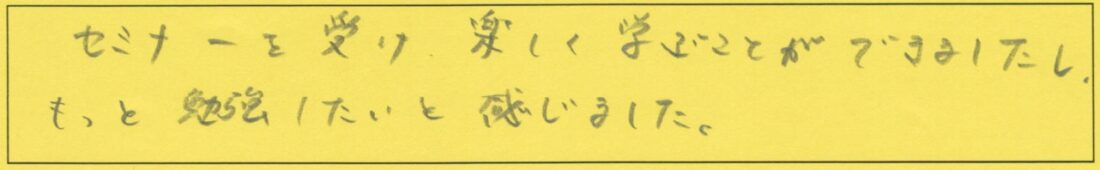 セミナーを受け、楽しく学ぶことができましたし、
もっと勉強したいと感じました。